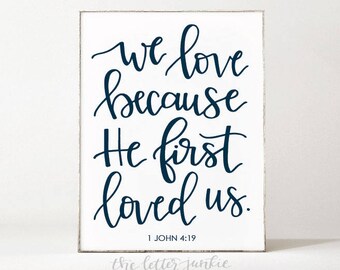 we love
because
He first
loved us.
1 JOHN 4:19
the letter junkie